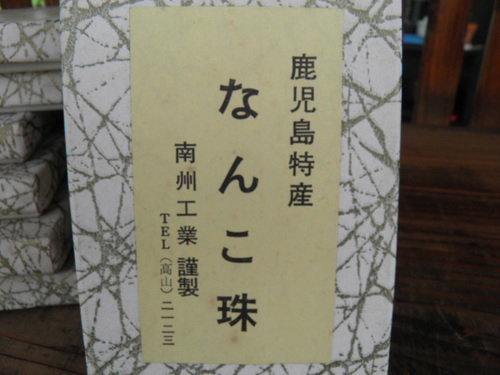 鹿児島特産
なんこ珠
南州工業 謹製
TEL(高山)二一二三